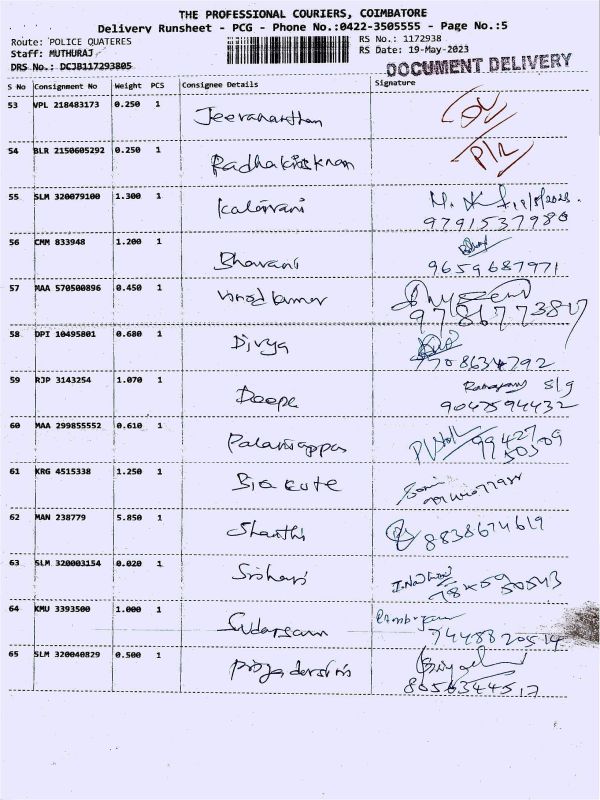 THE PROFESSIONAL COURIERS, COIMBATORE
Delivery Runsheet - PCG - Phone No.:0422-3505555 - Page No.:5
Route: POLICE QUATERES
RS No.: 1172938
Staff: MUTHURAJ
RS Date: 19-May-2023
DRS No.: DCJB117293805
DOCUMENT DELIVERY
S No Consignment No Weight PCS Consignee Details Signature
53 VPL 218483173 0.250 1 Jeevananthan
54 BLR 2150605292 0.250 1 Radhakrishnan P/R
55 SLM 320079100 1.300 1 Kalaivani
9791537980
56 CMM 833948 1.200 1 Bhavani
9659687971
57 MAA 570500896 0.450 1 Vinod kumar
58 DPI 10495801 0.680 1 Divya
7708634792
59 RJP 3143254 1.070 1 Deepa
9047594432
60 MAA 299855552 0.610 1 Palaniappan 99427
50309
61 KRG 4515338 1.250 1
62 MAN 238779 5.850 1 Shanthi 8838674619
63 SLM 320003154 0.020 1 Srihari
64 KMU 3393500 1.000 1 Sudarsann
7448820514
65 SLM 320040829 0.500 1 Priyadarshini
8056344517